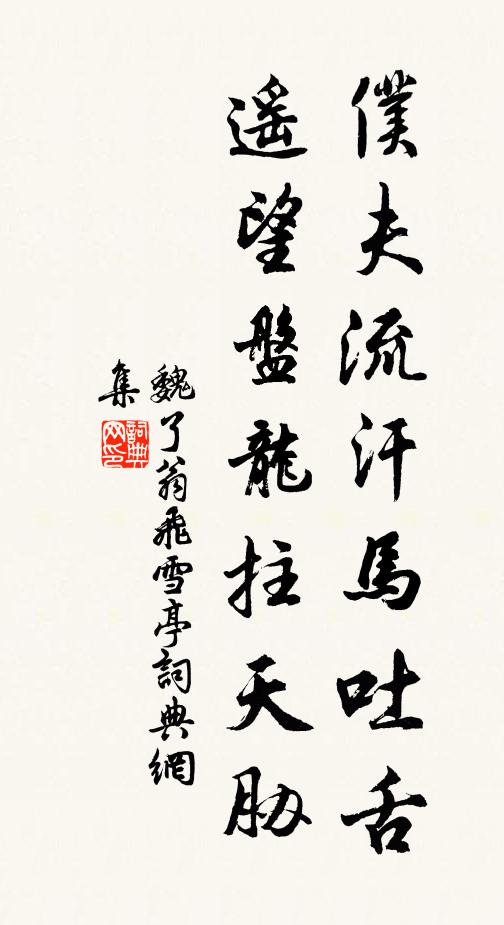 僕夫流汗馬吐舌
遥望盤龍拄天胁
魏了翁飛雪亭詞典網
集
詞典
网印